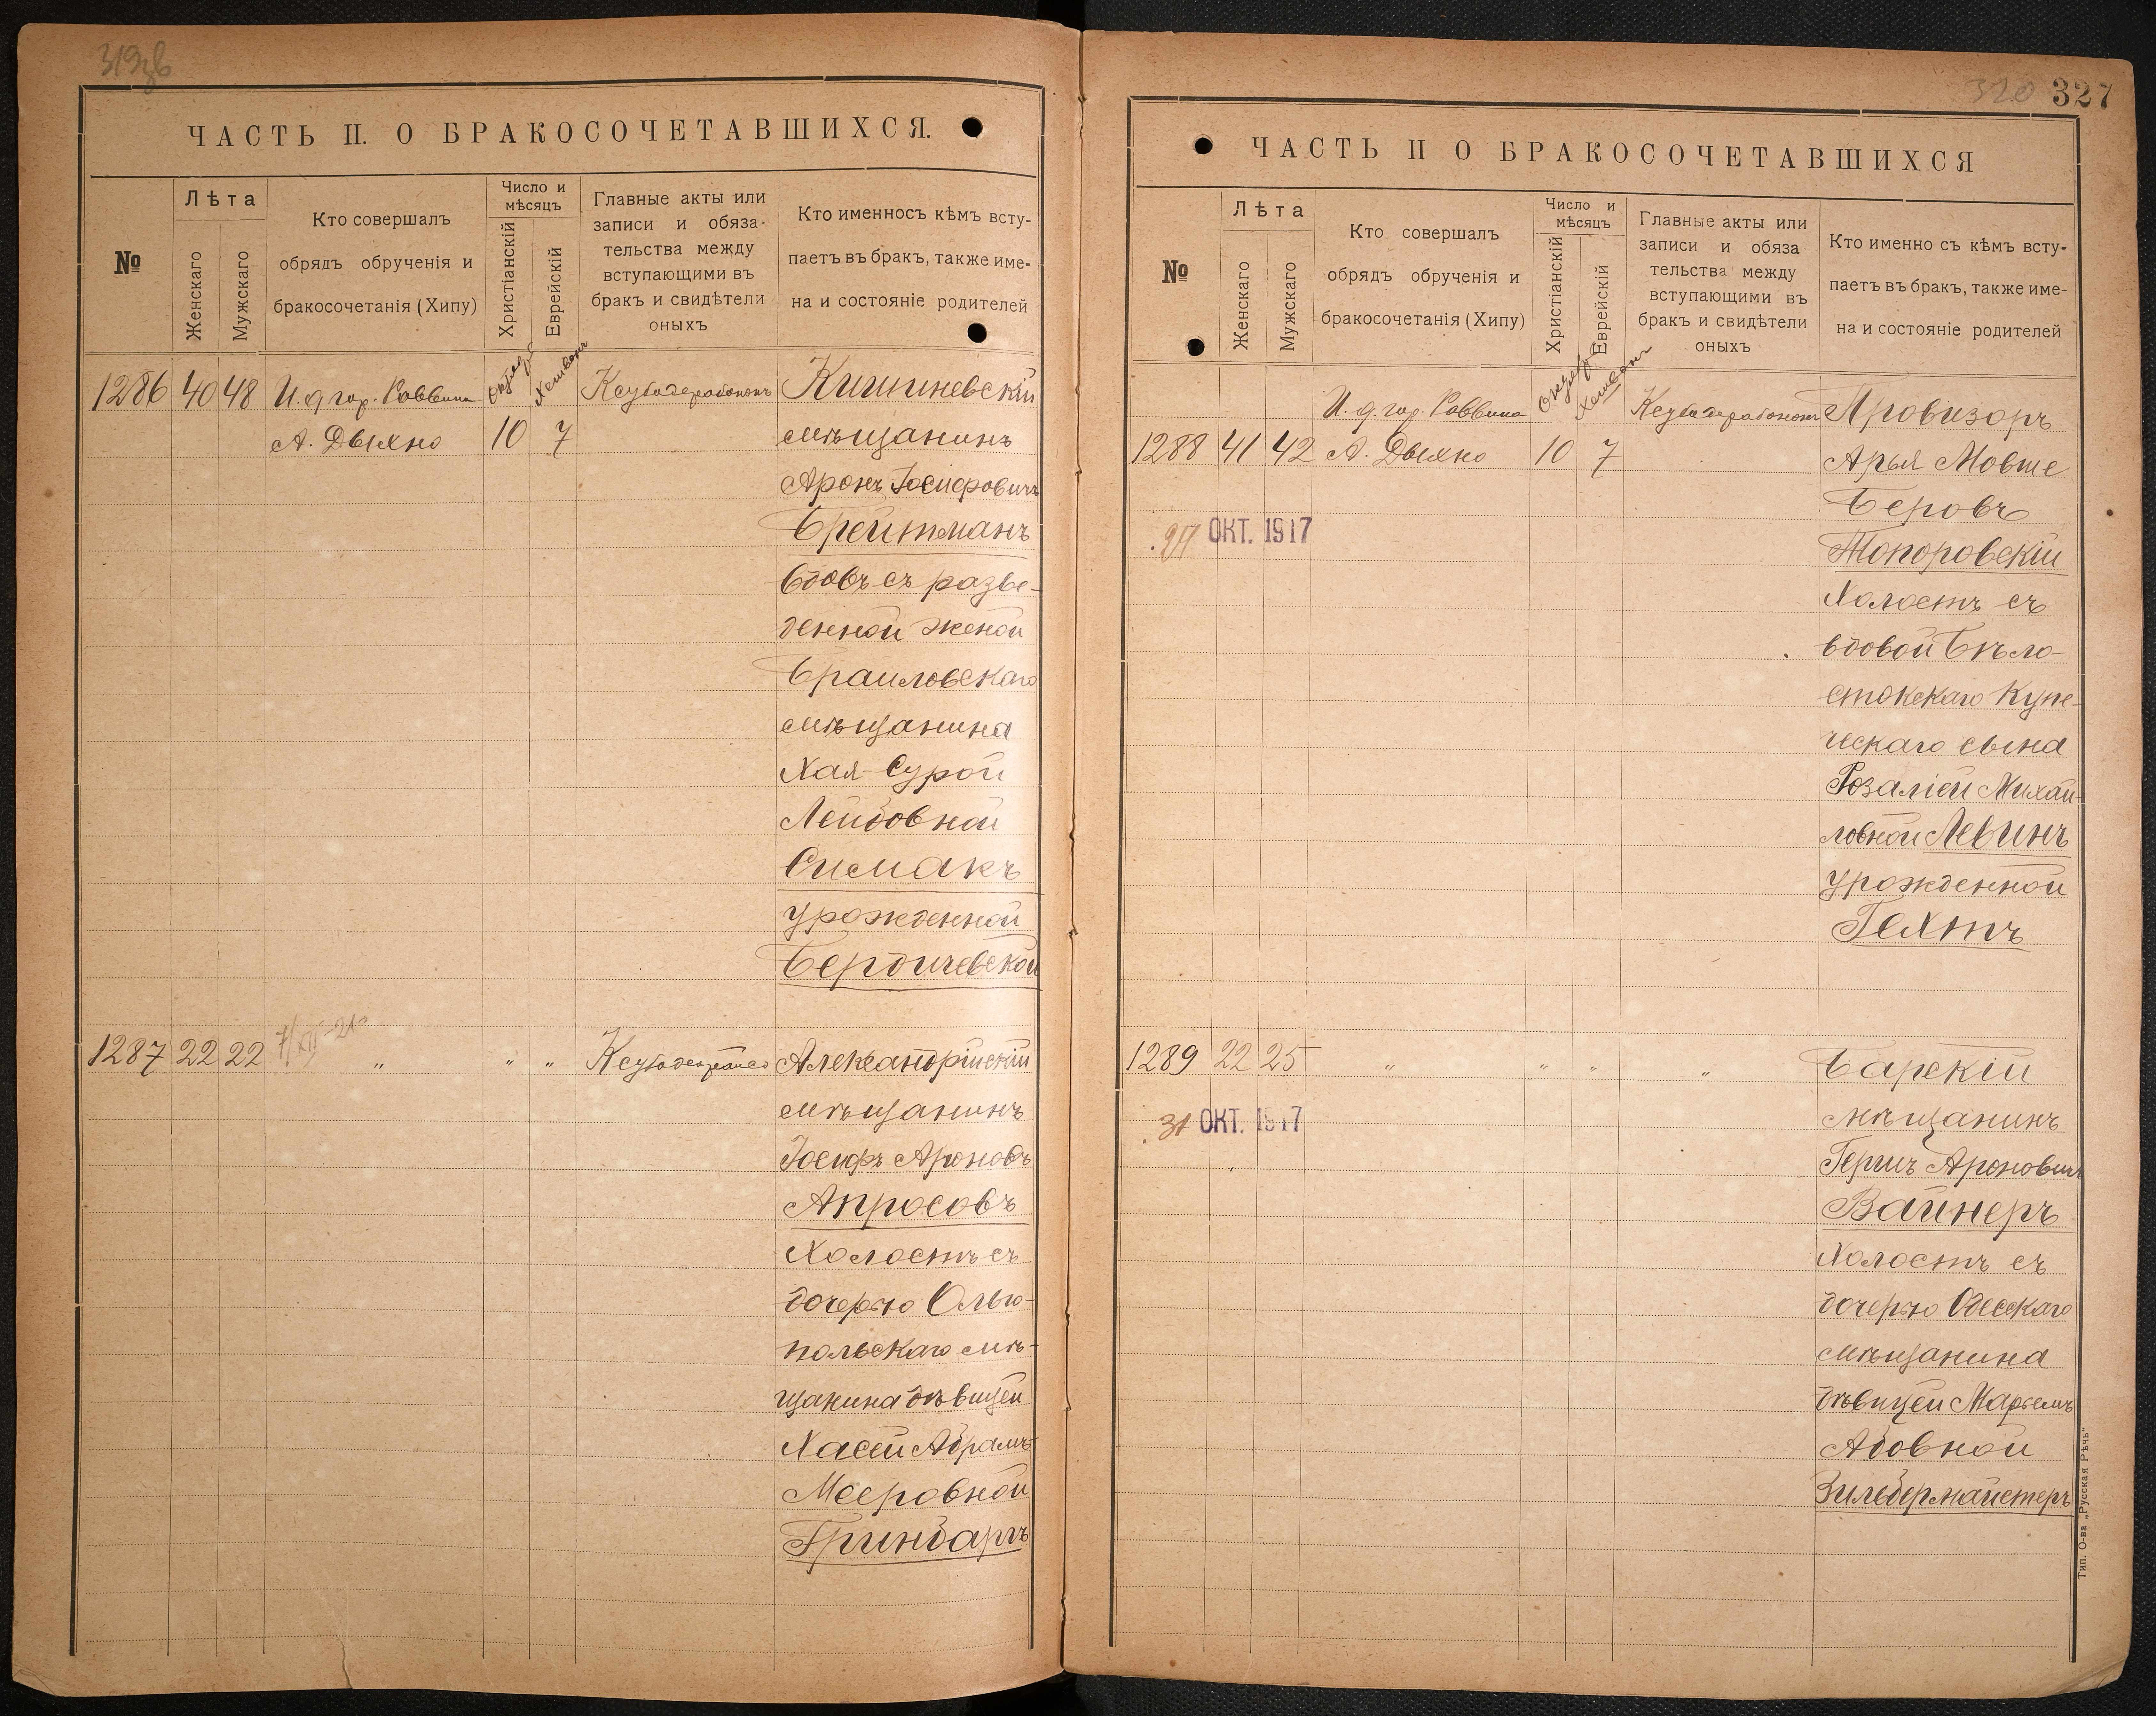 319зв
ЧАСТЬ II. О БРАКОСОЧЕТАВШИХСЯ.
№
Лѣта
Женскаго
Мужскаго
Кто совершалъ
обрядъ обрученія и
бракосочетанія (Хипу)
Число и
мѣсяцъ
Христіанскій
Еврейскій
Главные акты или
записи и обяза-
тельства между
вступающими въ
бракъ и свидѣтели
оныхъ
Кто именносъ кѣмъ всту-
паетъ въ бракъ, также име-
на и состояніе родителей
1286 40 48 И. д. гор. Раввина Хешвонъ Кишиневскій
А. Дыхно 10 7 мѣщанинъ
Аронъ Іосифовичъ
Брейтманъ
вдовъ съ разве-
денной женой
Браиловскаго
мѣщанина
Хая-Сурой
Лейбовной
Симакъ
урожденной
Бердичевской
1287 22 22 " " " Александрійскій
мѣщанинъ
Іосифъ Ароновъ
Апросовъ
Холостъ съ
дочерью Ольго-
польскаго мѣ-
щанина дѣвицей
Хасей Абрамъ-
Мееровной
Гринбаргъ
320 327
ЧАСТЬ II О БРАКОСОЧЕТАВШИХСЯ
№
Лѣта
Женскаго
Мужскаго
Кто совершалъ
обрядъ обрученія и
бракосочетанія (Хипу)
Число и
мѣсяцъ
Христіанскій
Еврейскій
Главные акты или
записи и обяза
тельства между
вступающими въ
бракъ и свидѣтели
оныхъ
Кто именно съ кѣмъ всту-
паетъ въ бракъ, также име-
на и состояніе родителей
И. д. гор. Раввина Хешвонъ Провизоръ
1288 41 42 А. Дыхно 10 7 Арья Мовше
Беровъ
27 ОКТ. 1917
Топоровскій
Холостъ съ
вдовой Бѣло-
стокскаго Купе-
ческаго сына
Розаліей Михай-
ловной Левинъ
урожденной
Гехтъ
1289 22 25 " " " " Барскій
мѣщанинъ
31 ОКТ. 1917
Гершъ Ароновичъ
Вайнеръ
Холостъ съ
дочерью Одесскаго
мѣщанина
дѣвицей Марьемъ
Абовной
Зильбермайстеръ
Тип. О-ва „Русская Рѣчь“